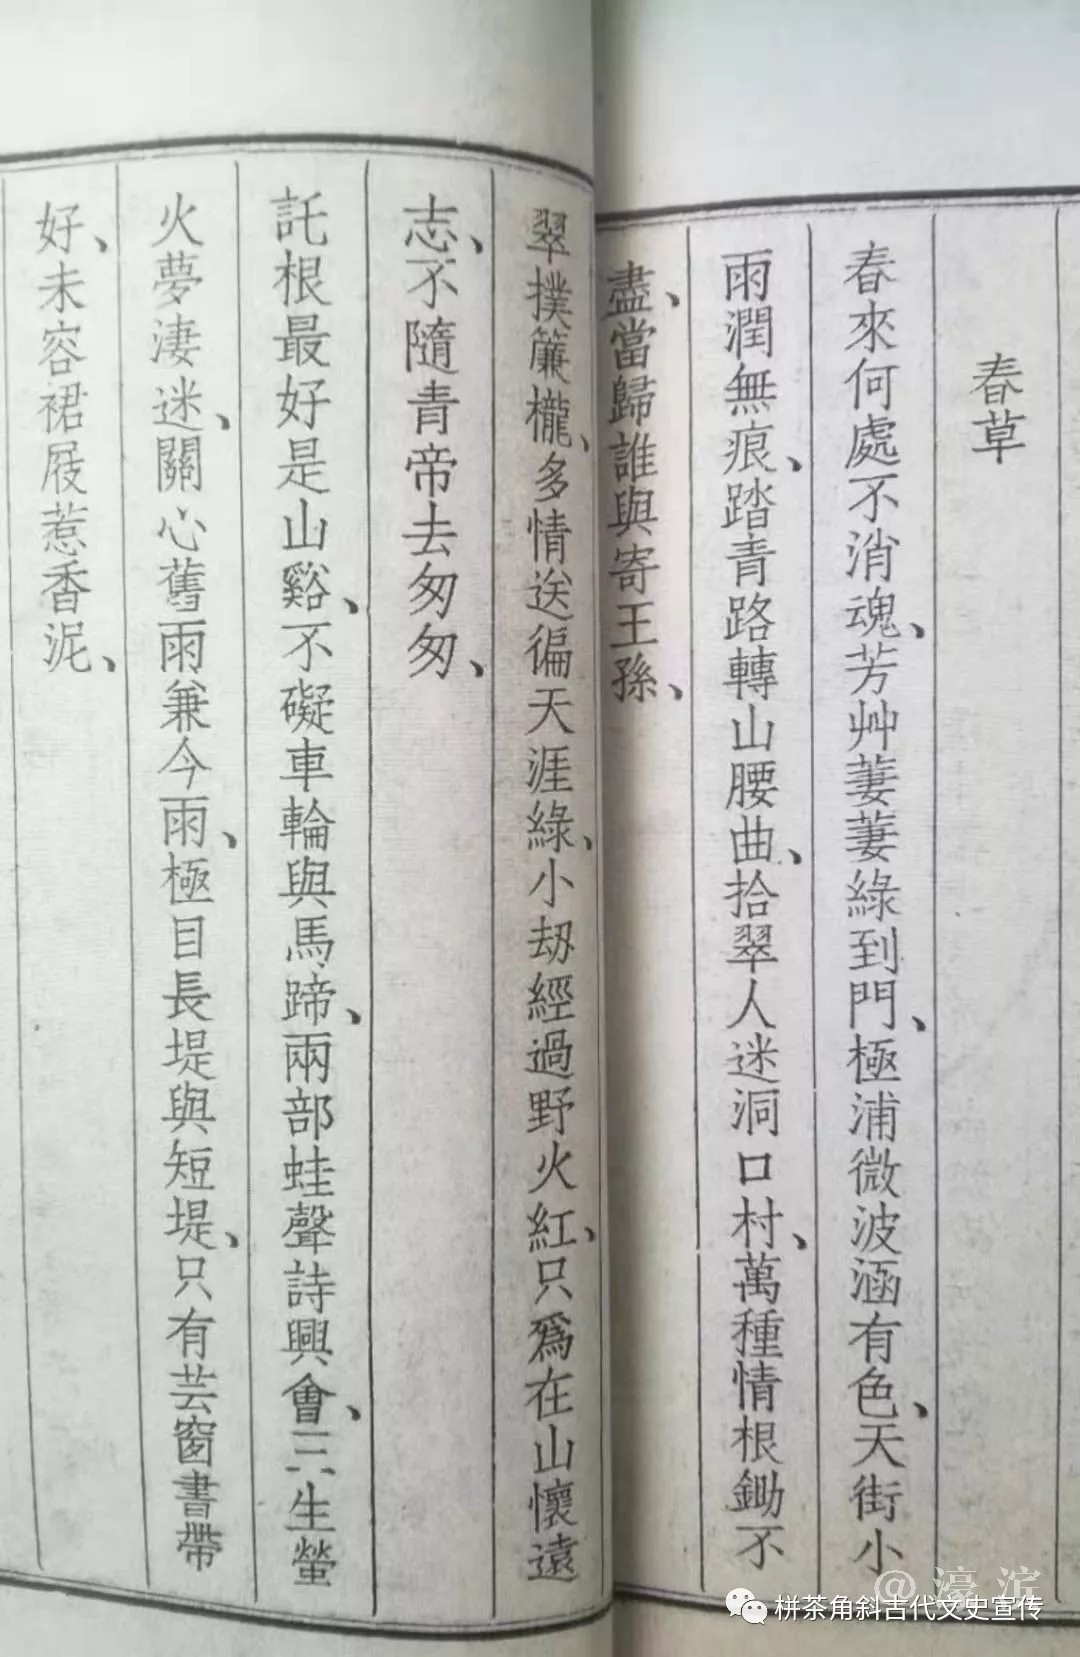 春草
春來何處不消魂、芳艸萋萋綠到門、極浦微波涵有色、天街小
雨潤無痕、踏青路轉山腰曲、拾翠人迷洞口村、萬種情根鋤不
盡、當歸誰與寄王孫、
翠撲簾櫳、多情送徧天涯綠、小刼經過野火紅、只爲在山懷遠
志、不隨青帝去匆匆、
託根最好是山谿、不礙車輪與馬蹄、兩部蛙聲詩興會、三生螢
火夢淒迷、關心舊雨兼今雨、極目長堤與短堤、只有芸窗書帶
好、未容裙屐惹香泥、
@濠滨
栟茶角斜古代文史宣传